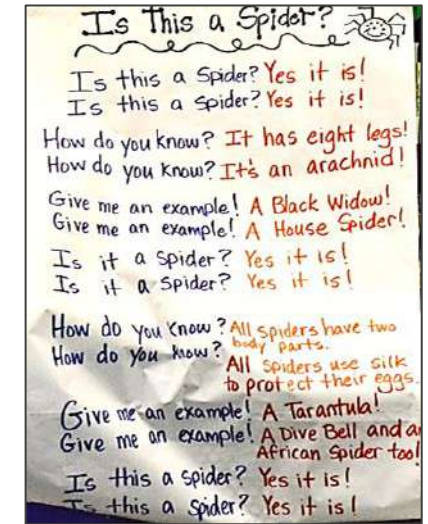 Is This a Spider?
Is this a spider? Yes it is!
Is this a spider? Yes it is!
How do you know? It has eight legs!
How do you know? It's an arachnid!
Give me an example! A Black Widow!
Give me an example! A House Spider!
Is it a spider? Yes it is!
Is it a spider? Yes it is!
How do you know? All spiders have two
body parts.
How do you know?
All spiders use silk
to protect their eggs.
Give me an example! A Tarantula!
Give me an example! A Dive Bell and a
African Spider too!
Is this a spider? Yes it is!
Is this a spider? Yes it is!